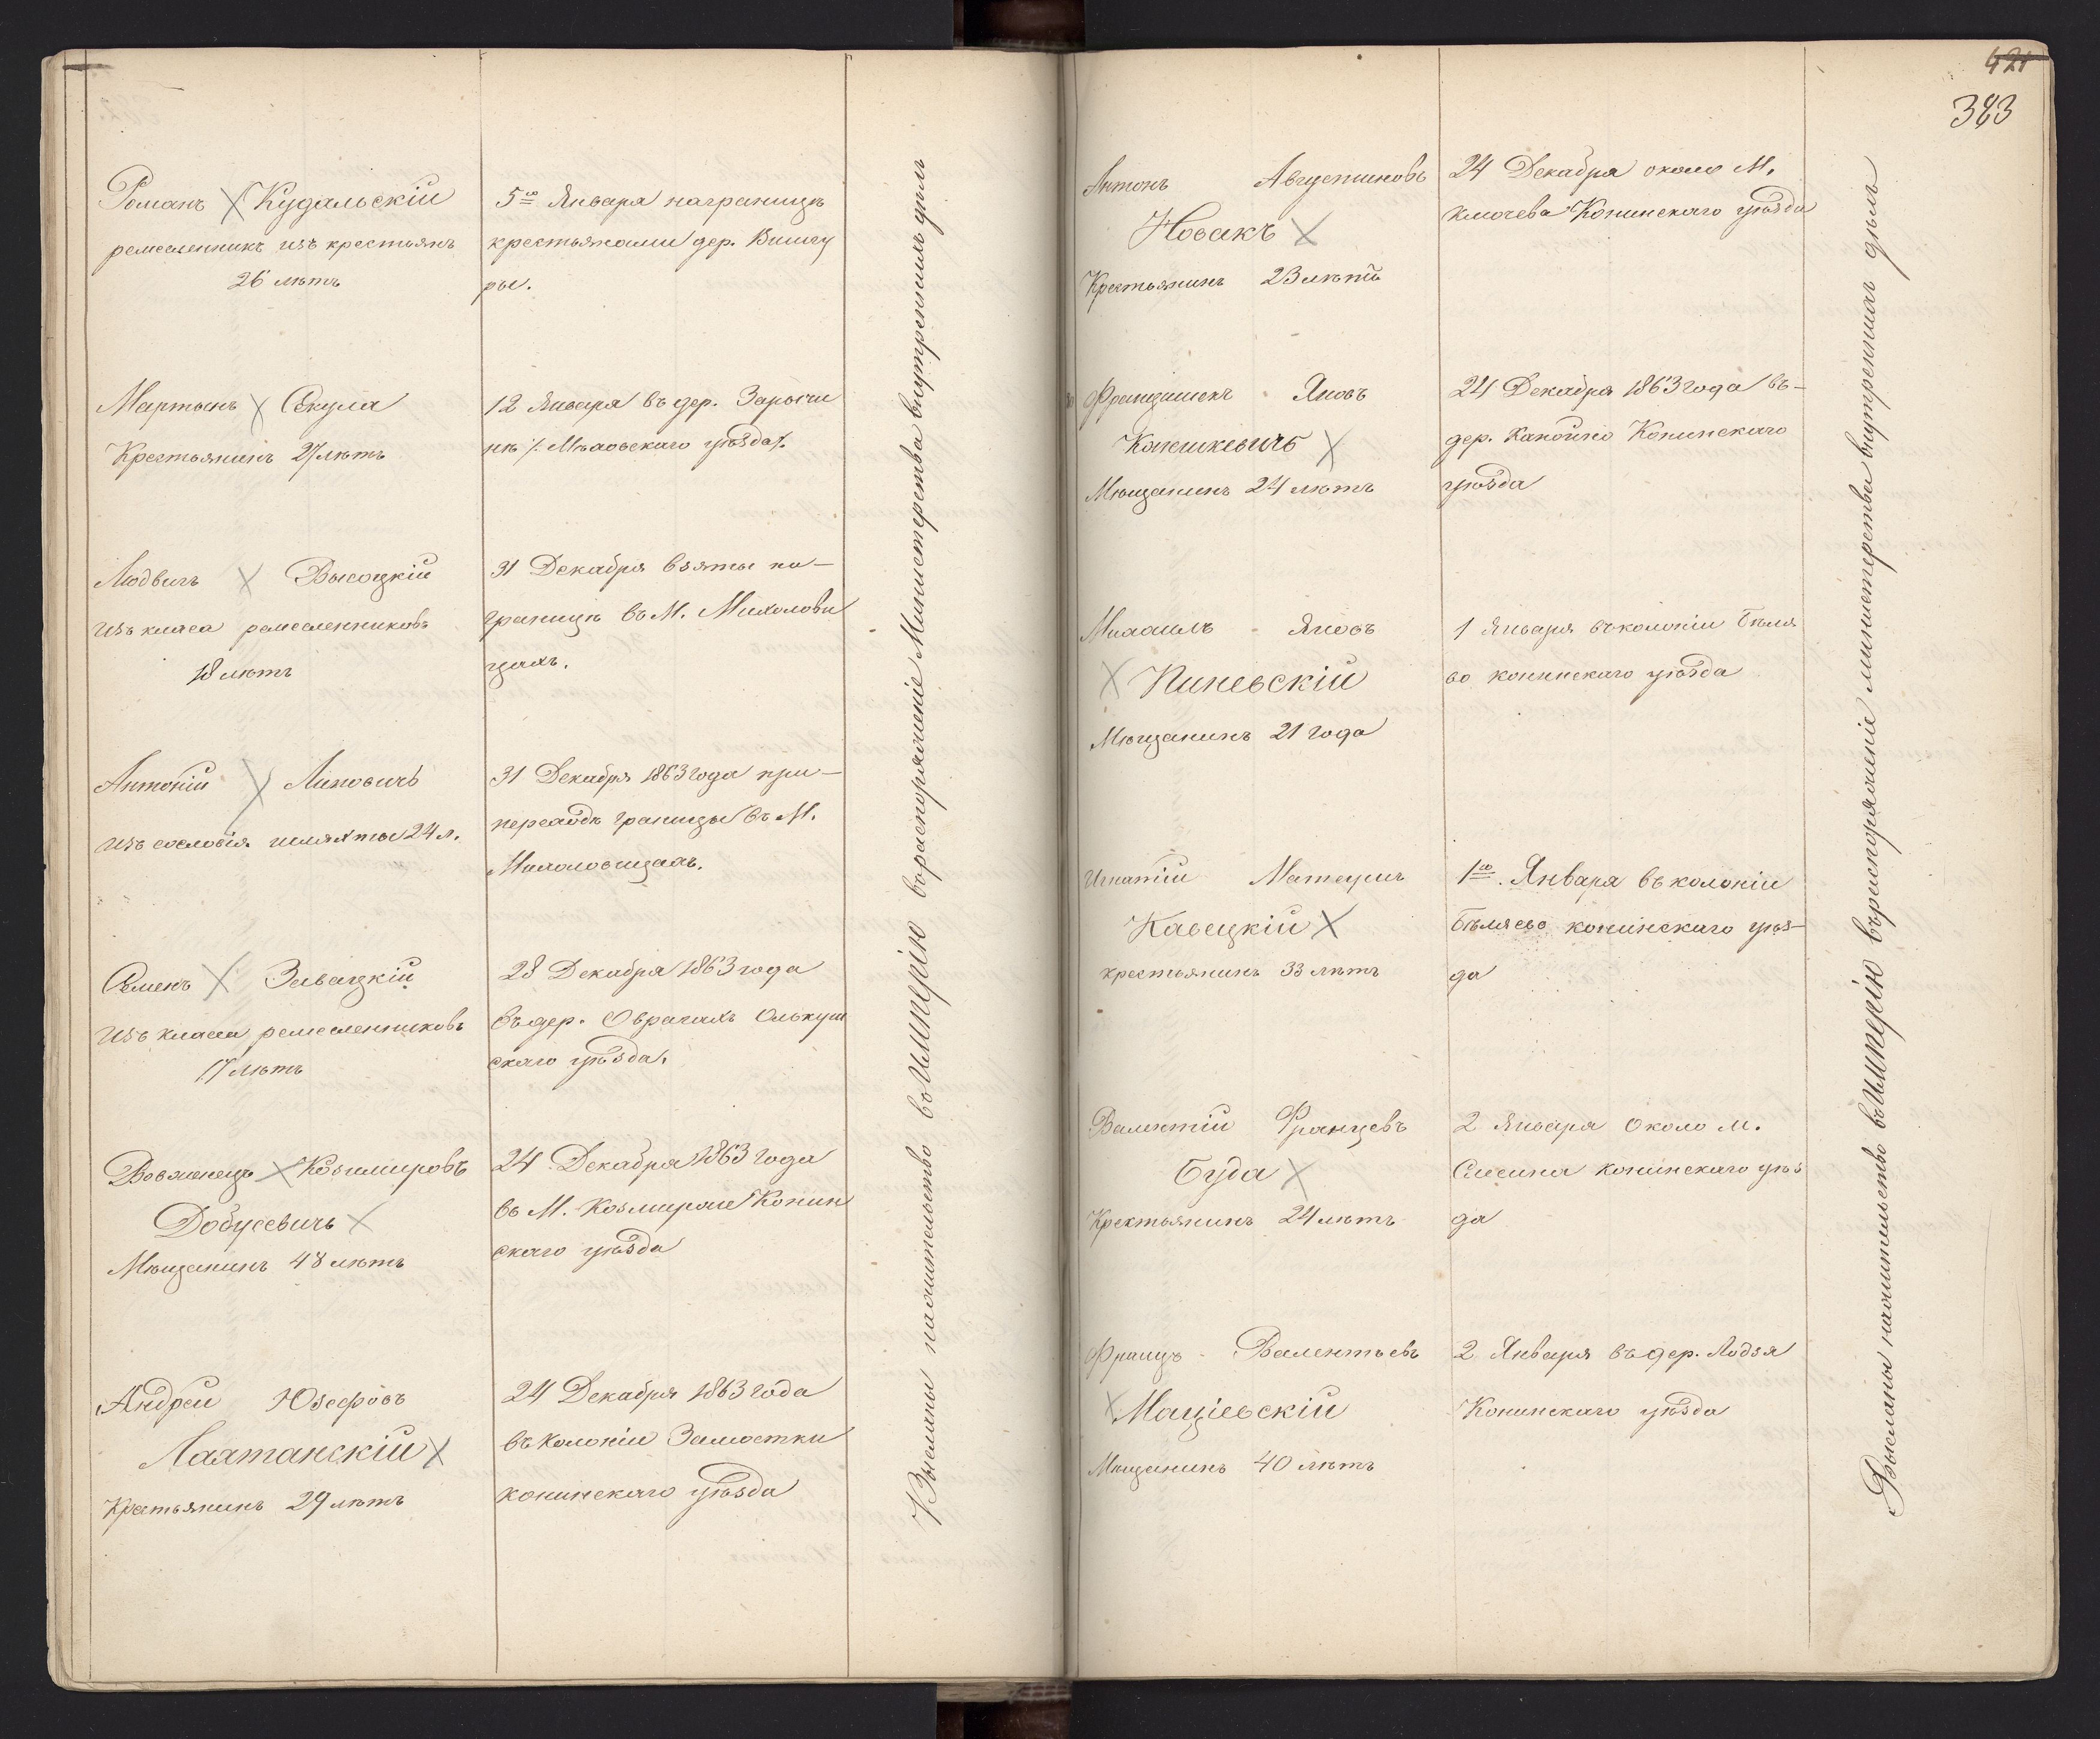 Романъ Кудальскій
ремесленникъ изъ крестьянъ
26 лѣтъ
5го Января награницѣ
крестьянами дер. Вишгу
ры.
Мартынъ Секула
Крестьянинъ 27 лѣтъ
12 Января въ дер. Заръччи
нѣ /: Мѣховскаго уѣзда :/.
Людвигъ Высоцкій
изъ класа ремесленниковъ
18 лѣтъ
31 Декабря взяты на-
границѣ въ М. Михолови
цахъ.
Антоній Линовичъ
изъ сословія шляхты 24 л.
31 Декабря 1863 года при-
переходѣ границы въ М.
Михоловицахъ.
Семенъ Зливацкій
Изъ класса ремесленниковъ
17 лѣтъ
28 Декабря 1863 года
въ дер. Оврагахъ Олькуш
скаго уѣзда.
Казимировъ
Добусевичъ
Мѣщанинъ 48 лѣтъ
24 Декабря 1863 года
въ М. Казмираш Конин
скаго уѣзда
Андрей Юзефовъ
Лахтанскій
Крестьянинъ 29 лѣтъ
24 Декабря 1863 года
въ колоніи Замостки
конинскаго уѣзда
Высланы нажительство въ Имперію вораспоряженіе Министерства внутреннихъ дѣлъ
421
383
Антонъ Августиновъ
Новакъ
Крестьянинъ 23 лѣтъ
24 Декабря около М.
Ключева Конинскаго уѣзда
Францишекъ Яновъ
Конишкевичъ
Мѣщанинъ 24 лѣтъ
24 Декабря 1863 года въ-
дер. Канойно Конинскаго
уѣзда
Михаилъ Яновъ
Киневскій
Мѣщанинъ 21 года
1 Января въ колоніи Бѣля
во конинскаго уѣзда
Игнатій Матеушъ
Кавецкій
крестьянинъ 33 лѣтъ
1го Января въ колоніи
Бѣляево конинскаго уѣз-
да
Валентій Францевъ
Буда
Крестьянинъ 24 лѣтъ
2 Января около м.
Слесина конинскаго уѣз
да
Францъ Валентьевъ
Маціевскій
Мѣщанинъ 40 лѣтъ
2 Января въ дер. Лодзя
Конинскаго уѣзда
Высланы нажительство въ Имперію въраспоряженіе министерства внутреннихъ дѣлъ